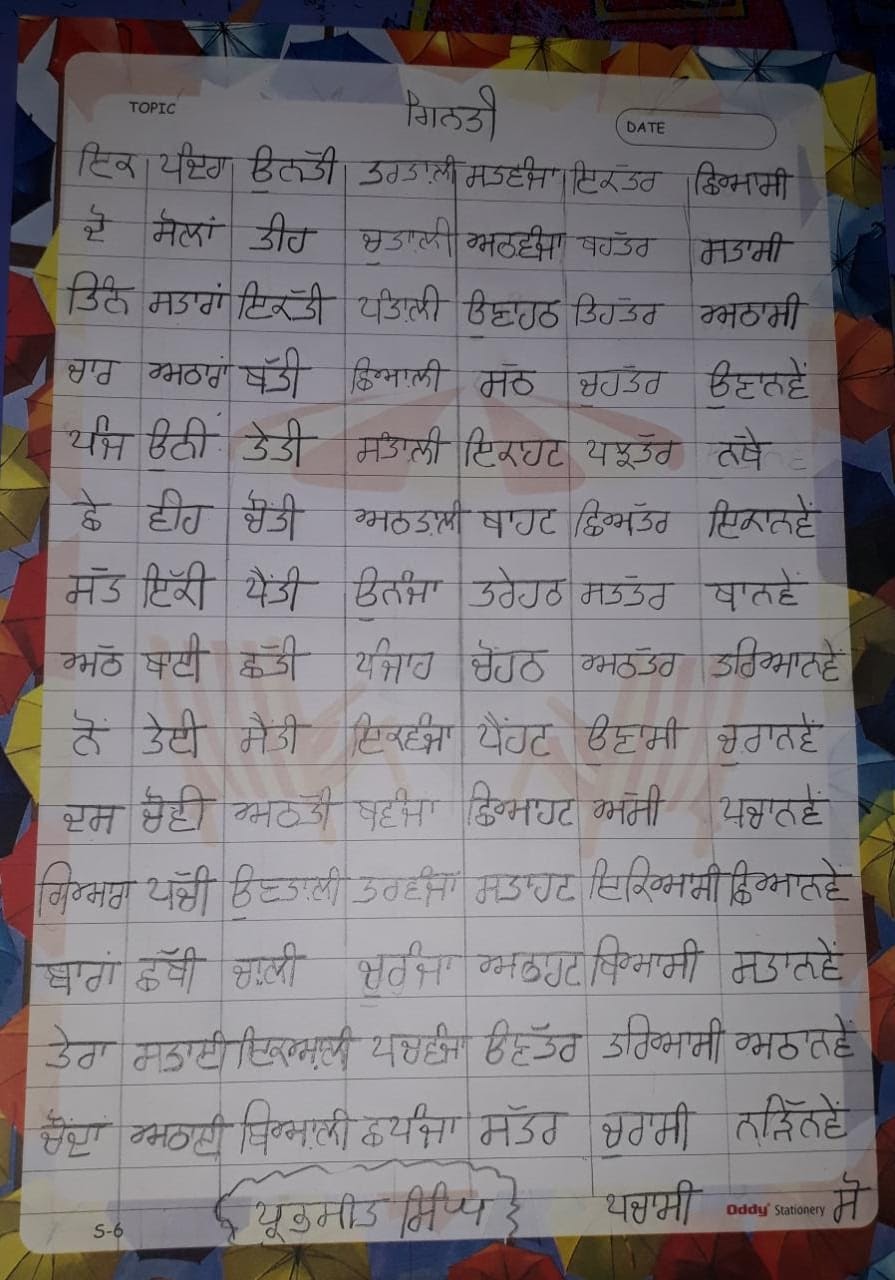 TOPIC ਗਿਨਤੀ DATE
ਇਕ ਪੰਦਰਾ ਉਨਤੀ ਤਰਤਾਲੀ ਸਤਵੰਜਾ ਇਕੱਤਰ ਛਿਆਸੀ
ਦੋ ਸੋਲਾਂ ਤੀਹ ਚੁਤਾਲੀ ਅਠਵੰਜਾ ਬਹੱਤਰ ਸਤਾਸੀ
ਤਿੰਨ ਸਤਾਰਾਂ ਇਕੱਤੀ ਪੰਤਾਲੀ ਉਣਾਹਠ ਤਿਹੱਤਰ ਅਠਾਸੀ
ਚਾਰ ਅਠਾਰਾਂ ਬੱਤੀ ਛਿਆਲੀ ਸੱਠ ਚੁਹੱਤਰ ਉਣਾਨਵੇਂ
ਪੰਜ ਉਨੀ ਤੇਤੀ ਸੰਤਾਲੀ ਇਕਾਹਟ ਪਝੱਤਰ ਨੱਬੇ
ਛੇ ਵੀਹ ਚੌਤੀ ਅਠਤਾਲੀ ਬਾਹਟ ਛਿਅੱਤਰ ਇਕਾਨਵੇਂ
ਸੱਤ ਇੱਕੀ ਪੈਂਤੀ ਉਨੰਜਾ ਤਰੇਹਠ ਸਤਤੱਰ ਬਾਨਵੇਂ
ਅੱਠ ਬਾਈ ਛੱਤੀ ਪੰਜਾਹ ਚੋਂਹਠ ਅਠਤੱਰ ਤਰਿਆਨਵੇਂ
ਨੌਂ ਤੇਈ ਸੈਂਤੀ ਇਕਵੰਜਾ ਪੈਂਹਟ ਉਣਾਸੀ ਚੁਰਾਨਵੇਂ
ਦਸ ਚੌਵੀ ਅਠਤੀ ਬਵੰਜਾ ਛਿਆਹਟ ਅੱਸੀ ਪਚਾਨਵੇਂ
ਗਿਆਰਾ ਪੱਚੀ ਉਣਤਾਲੀ ਤਰਵੰਜਾ ਸਤਾਹਟ ਇਕਿਆਸੀ ਛਿਆਨਵੇਂ
ਬਾਰਾਂ ਛੱਬੀ ਚਾਲੀ ਚੁਰੰਜਾ ਅਠਾਹਟ ਬਿਆਸੀ ਸਤਾਨਵੇਂ
ਤੇਰਾ ਸਤਾਈ ਇਕਆਲੀ ਪਚਵੰਜਾ ਉਣੱਤਰ ਤਰਿਆਸੀ ਅਠਾਨਵੇਂ
ਚੌਦਾਂ ਅਠਾਈ ਬਿਆਲੀ ਛਪੰਜਾ ਸੱਤਰ ਚੁਰਾਸੀ ਨੜਿੱਨਵੇਂ
ਸਿੰਘ ਪਚਾਸੀ Oddy Stationery ਸੌ
S-6